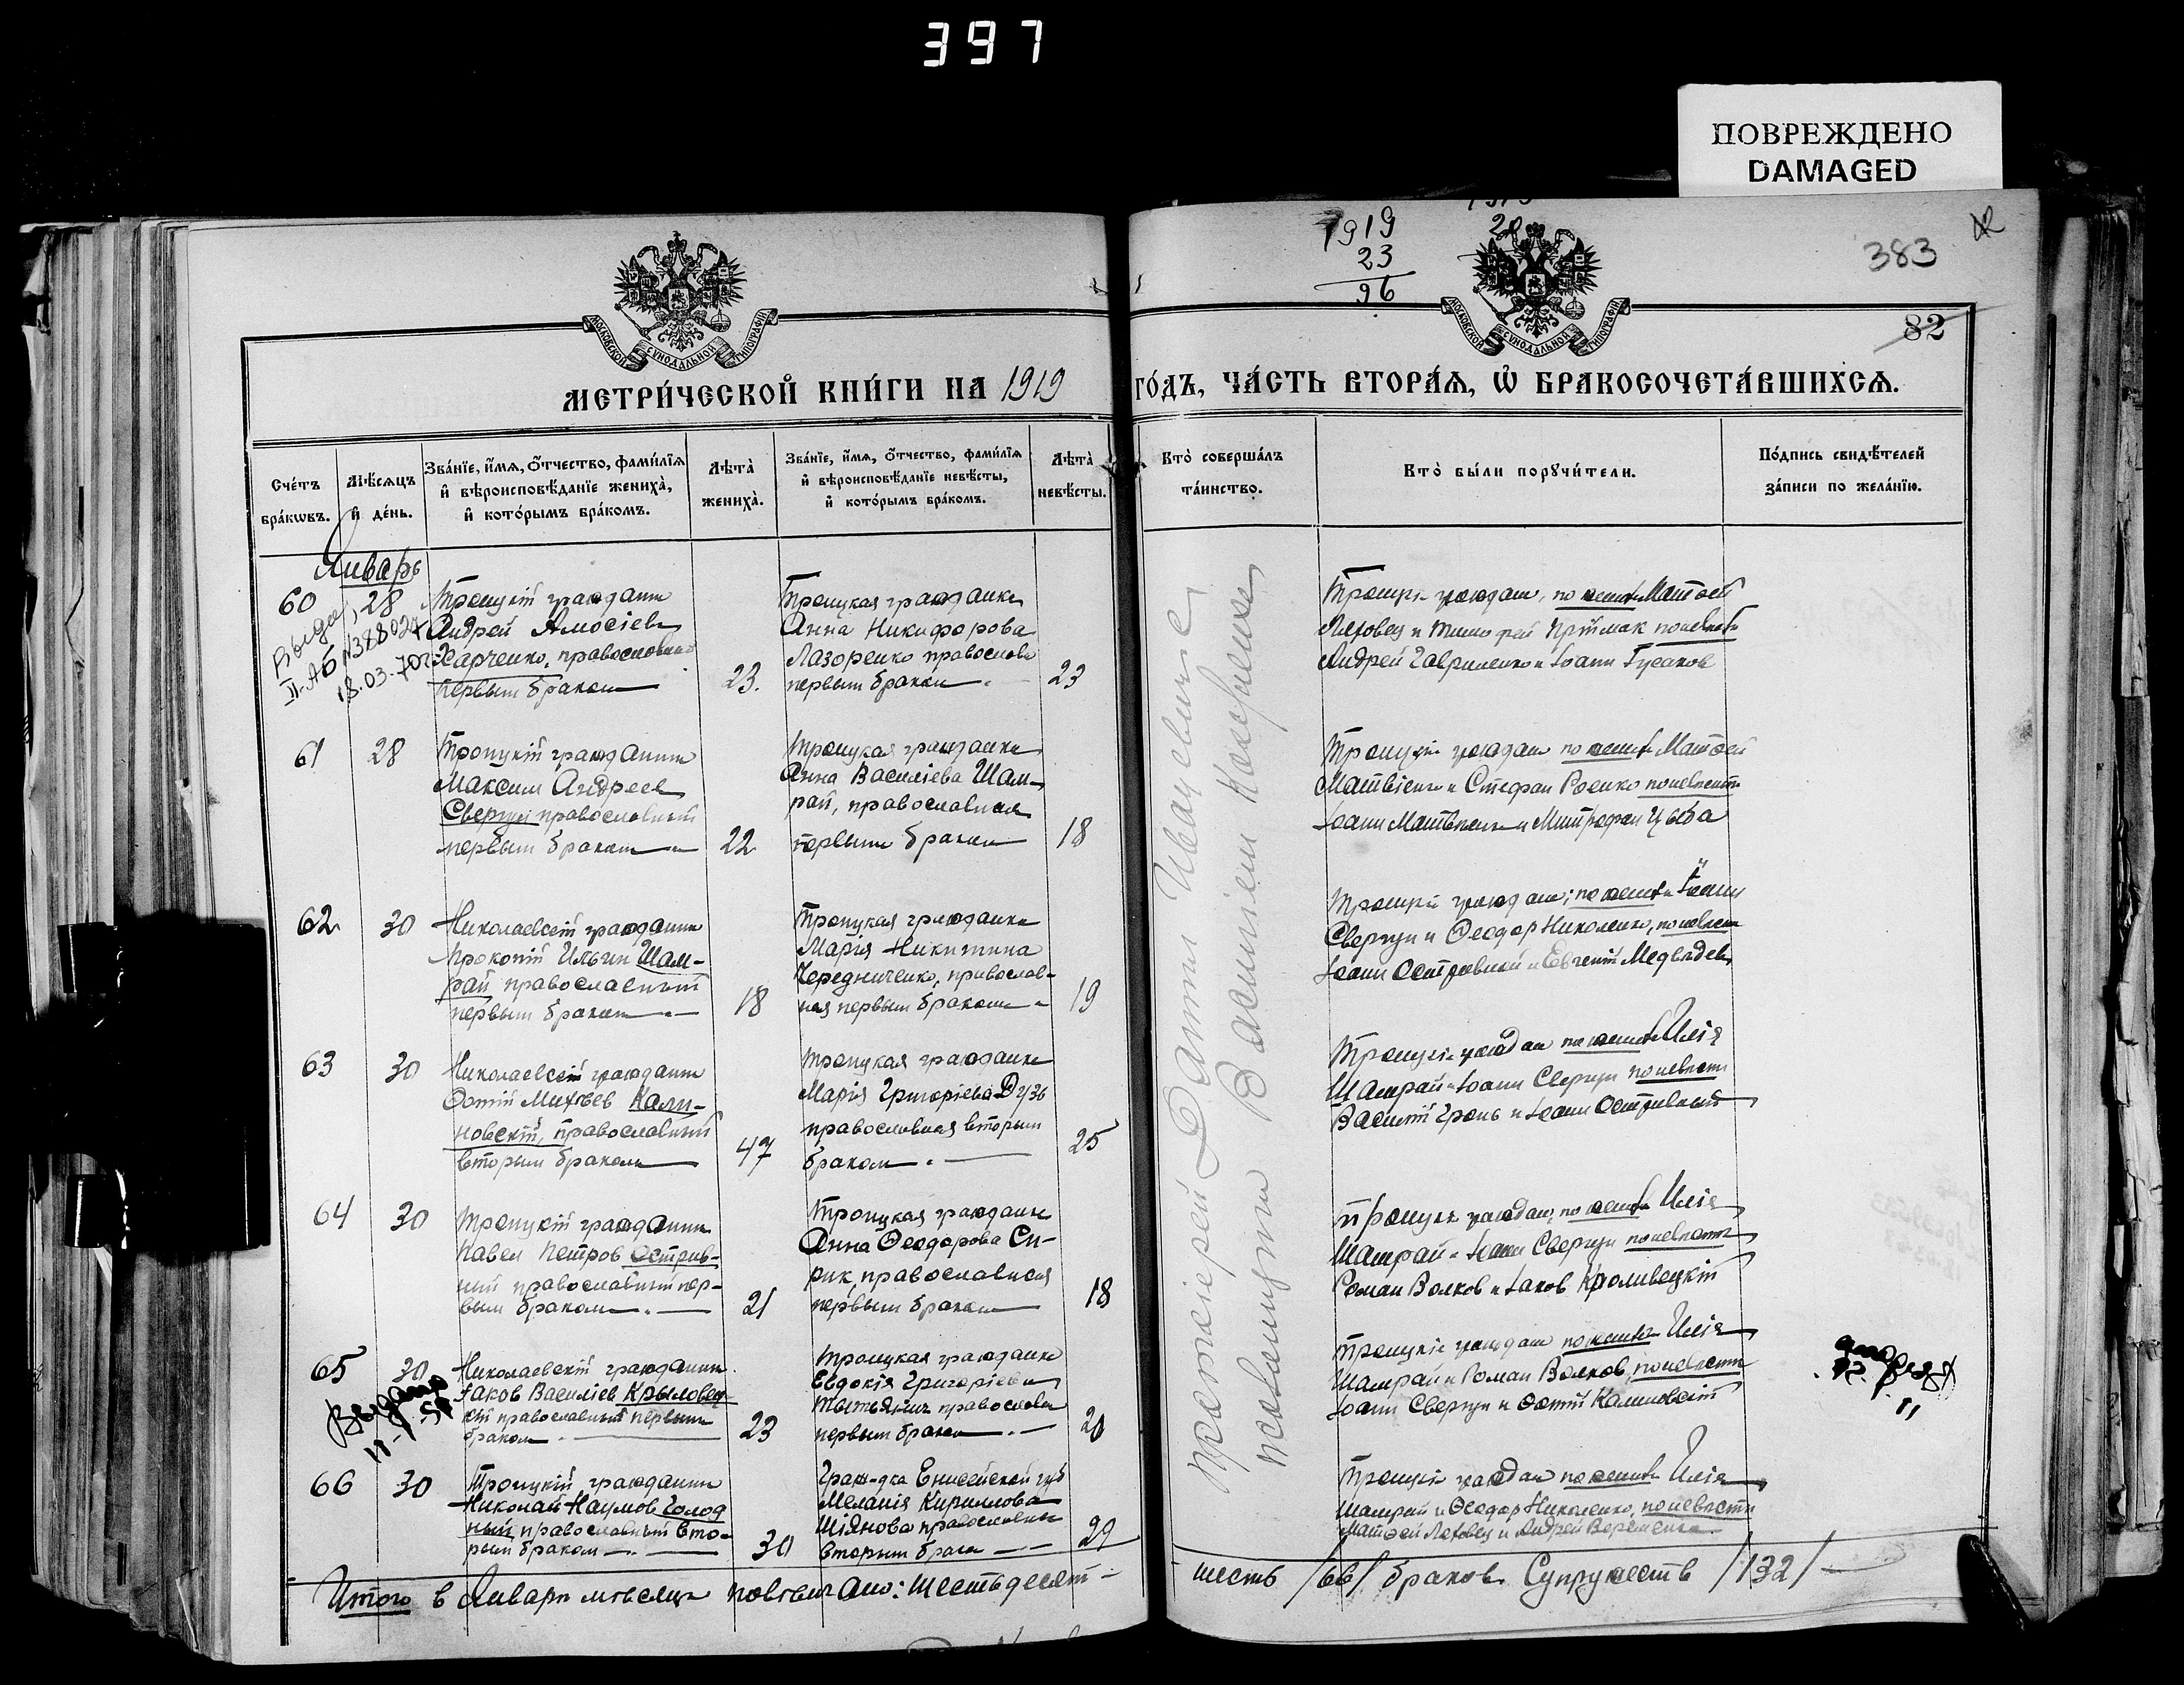 397
ПОВРЕЖДЕНО
DAMAGED
1919
23
96
20
383
82
МОСКОВСКОЙ СУНОДАЛЬНОЙ ТИПОГРАФІИ
МОСКОВСКОЙ СУНОДАЛЬНОЙ ТИПОГРАФІИ
МЕТРИ́ЧЕСКОЙ КНИ́ГИ НА 1919 ГО́ДЪ, ЧА́СТЬ ВТОРА́Я, Ѡ҆ БРАКОСОЧЕТА́ВШИХСЯ.
Сче́тъ бра́кѡвъ.
Мѣ́сяцъ и҆ де́нь.
Зва́нїе, и҆́мя, ѻ҆́тчество, фами́лїя и҆ вѣроисповѣ́данїе жениха̀, и҆ кото́рымъ бра́комъ.
Лѣта̀ жениха̀.
Зва́нїе, и҆́мя, ѻ҆́тчество, фами́лїя и҆ вѣроисповѣ́данїе невѣ́сты, и҆ кото́рымъ бра́комъ.
Лѣта̀ невѣ́сты.
Кто̀ соверша́лъ та́инство.
Кто̀ бы́ли порꙋчи́тели.
По́дпись свидѣ́телей за́писи по жела́нїю.
Январь
60
28
II-АБ N388024
18.03.70г
Троицкій гражданин
Андрей Амосіев
Харченко, православный
первым браком
23.
Троицкая гражданка
Анна Никифорова
Лазоренко православн
первым браком
23
Троицкіе граждане, по жениху Матфей
Ляховец и Тимофей Прімак по невѣсте
Андрей Гавриленко и Іоанн Гусаков
61
28
Троицкій гражданин
Максим Андреев
Свергун православный
первым браком
22
Троицкая гражданка
Анна Василіева Шам-
рай, православная
первым браком
18
Троицкіе граждане по жениху Матфей
Матвіенко и Стефан Роенко по невѣсте
Іоанн Матвіенко и Митрофан Цыба
62
30
Николаевскій гражданин
Прокопій Ильин Шам-
рай православный
первым браком
18
Троицкая гражданка
Марія Никитина
Чередниченко, православ-
ная первым браком
19
Троицкіе граждане; по жениху Іоанн
Свергун и Ѳеодор Николенко, по невѣсте
Іоанн Остривной и Евгеній Медвѣдев
63
30
Николаевскій гражданин
Фотій Михѣев Кали-
новскій, православный
вторым браком
47
Троицкая гражданка
Марія Григоріева Дузь
православная вторым
браком
25
Троицкіе граждане по жениху Илія
Шамрай и Іоанн Свергун по невѣсте
Василій Гронь и Іоанн Остривный
64
30
Троицкій гражданин
Павел Петров Острив-
ный православный пер-
вым браком
21
Троицкая гражданка
Анна Ѳеодорова Си-
рик, православная
первым браком
18
Троицкіе граждане, по жениху Илія
Шамрай и Іоанн Свергун по невѣсте
Роман Волков и Іаков Кроливецкій
65
30
Выдано
Николаевскій гражданин
Іаков Василіев Крыловец-
кій православный первым
браком
23
Троицкая гражданка
Евдокія Григоріева
православн
первым браком
20
Троицкіе граждане по жениху Илія
Шамрай и Роман Волков, по невѣсте
Іоанн Свергун и Фотій Калиновскій
66
30
Троицкій гражданин
Николай Наумов Голод
ный православный вто-
рым браком
30
Граж-дка Енисейской губ
Меланія Кириллова
Шіянова православная
вторым браком
29
Троицкіе граждане по жениху Илія
Шамрай и Ѳеодор Николенко, по невѣсте
Матфей Ляховец и Андрей Веременко
Протоіерей
Василіем
Итого в Январѣ мѣсяцѣ повѣнчано: шестьдесят шесть /66/ браков. Супружеств /132/